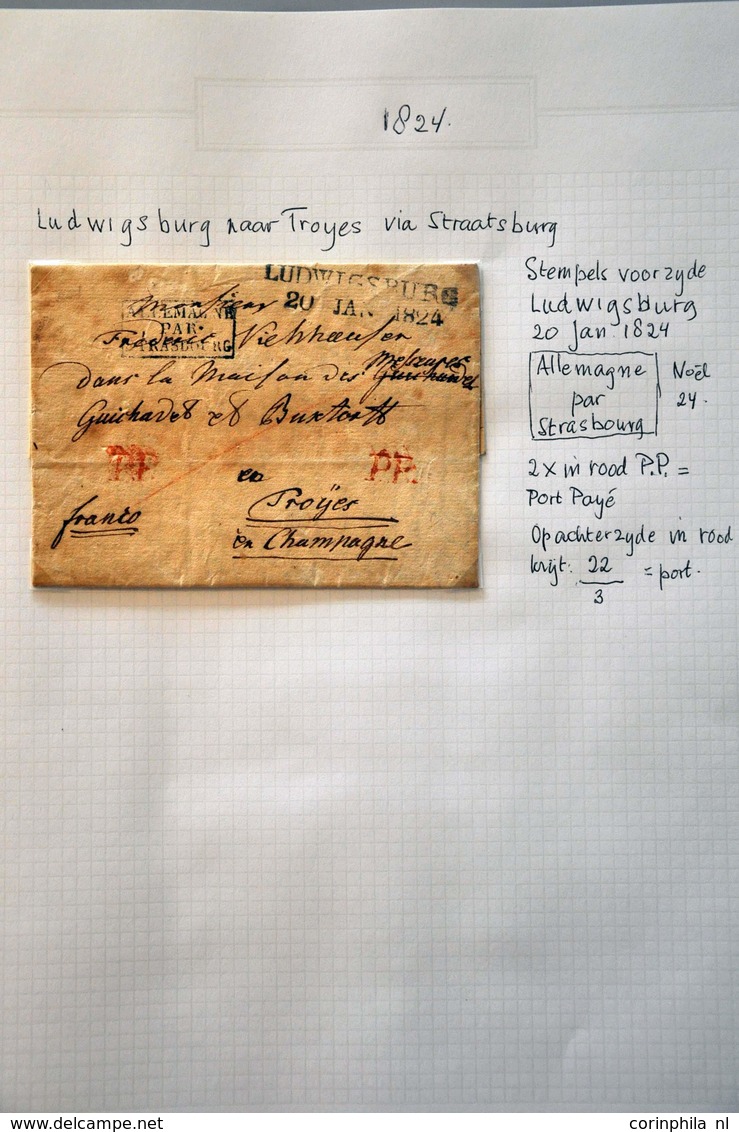 1824.
Ludwigsburg naar Troyes via Straatsburg
LUDWIGSBURG
20 JAN 1824
ALLEMAGNE
PAR
STRASBOURG
Monsieur
Frédéric Viehhäuser
dans la Maison des
Guichard et
P.P. P.P.
en
franco Troÿes
en Champagne
Stempels voorzyde
Ludwigsburg
20 Jan. 1824
Allemagne
par
Strasbourg
Noël
24.
2x in rood P.P. =
Port Payé
Op achterzyde in rood
krijt: 22
3
= port.
corinphila nl